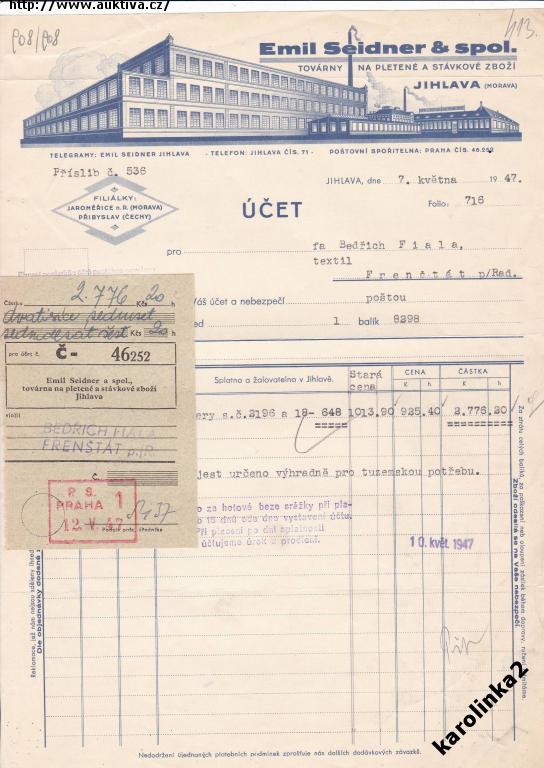 http://www.auktiva.cz/
908/908
413.
Emil Seidner & spol.
TOVÁRNY NA PLETENÉ A STÁVKOVÉ ZBOŽÍ
JIHLAVA (MORAVA)
TELEGRAMY: EMIL SEIDNER JIHLAVA - TELEFON: JIHLAVA ČÍS. 71 - POŠTOVNÍ SPOŘITELNA: PRAHA ČÍS. 46.252
Příslib č. 536
JIHLAVA, dne 7. května 1947.
Folio: 716
FILIÁLKY:
JAROMĚŘICE n. R. (MORAVA)
PŘIBYSLAV (ČECHY)
ÚČET
pro fa Bedřich Fiala,
textil
Frenštát p/Rad.
Váš účet a nebezpečí poštou
1 balík 8298
Částka 2.776 Kčs 20 h
dvatisíce sedmset
sedmdesát šest Kčs 20 h
pro účet č. Č - 46252
Emil Seidner a spol.,
továrna na pletené a stávkové zboží
Jihlava
vložil
BEDŘICH FIALA
FRENŠTÁT p./R.
Č.
P. S. 1
PRAHA
12. V. 47
Podpis prac. úředníka
Splatno a žalovatelno v Jihlavě.
Stará cena
CENA
K h
ČÁSTKA
K h
ery s.č.2196 a 18- 648 1013.90 925.40 2.776.20
jest určeno výhradně pro tuzemskou potřebu.
za hotové beze srážky při pla-
15 dnů ode dne vystavení účtu.
Při placení po dni splatnosti
účtujeme úrok z prodlení.
10. květ. 1947
Zboží odesílá se na Vaše nebezpečí.
Dle objednávky dodané
Nedodržení ujednaných platebních podmínek zprošťuje nás dalších dodávkových závazků.
karolinka2